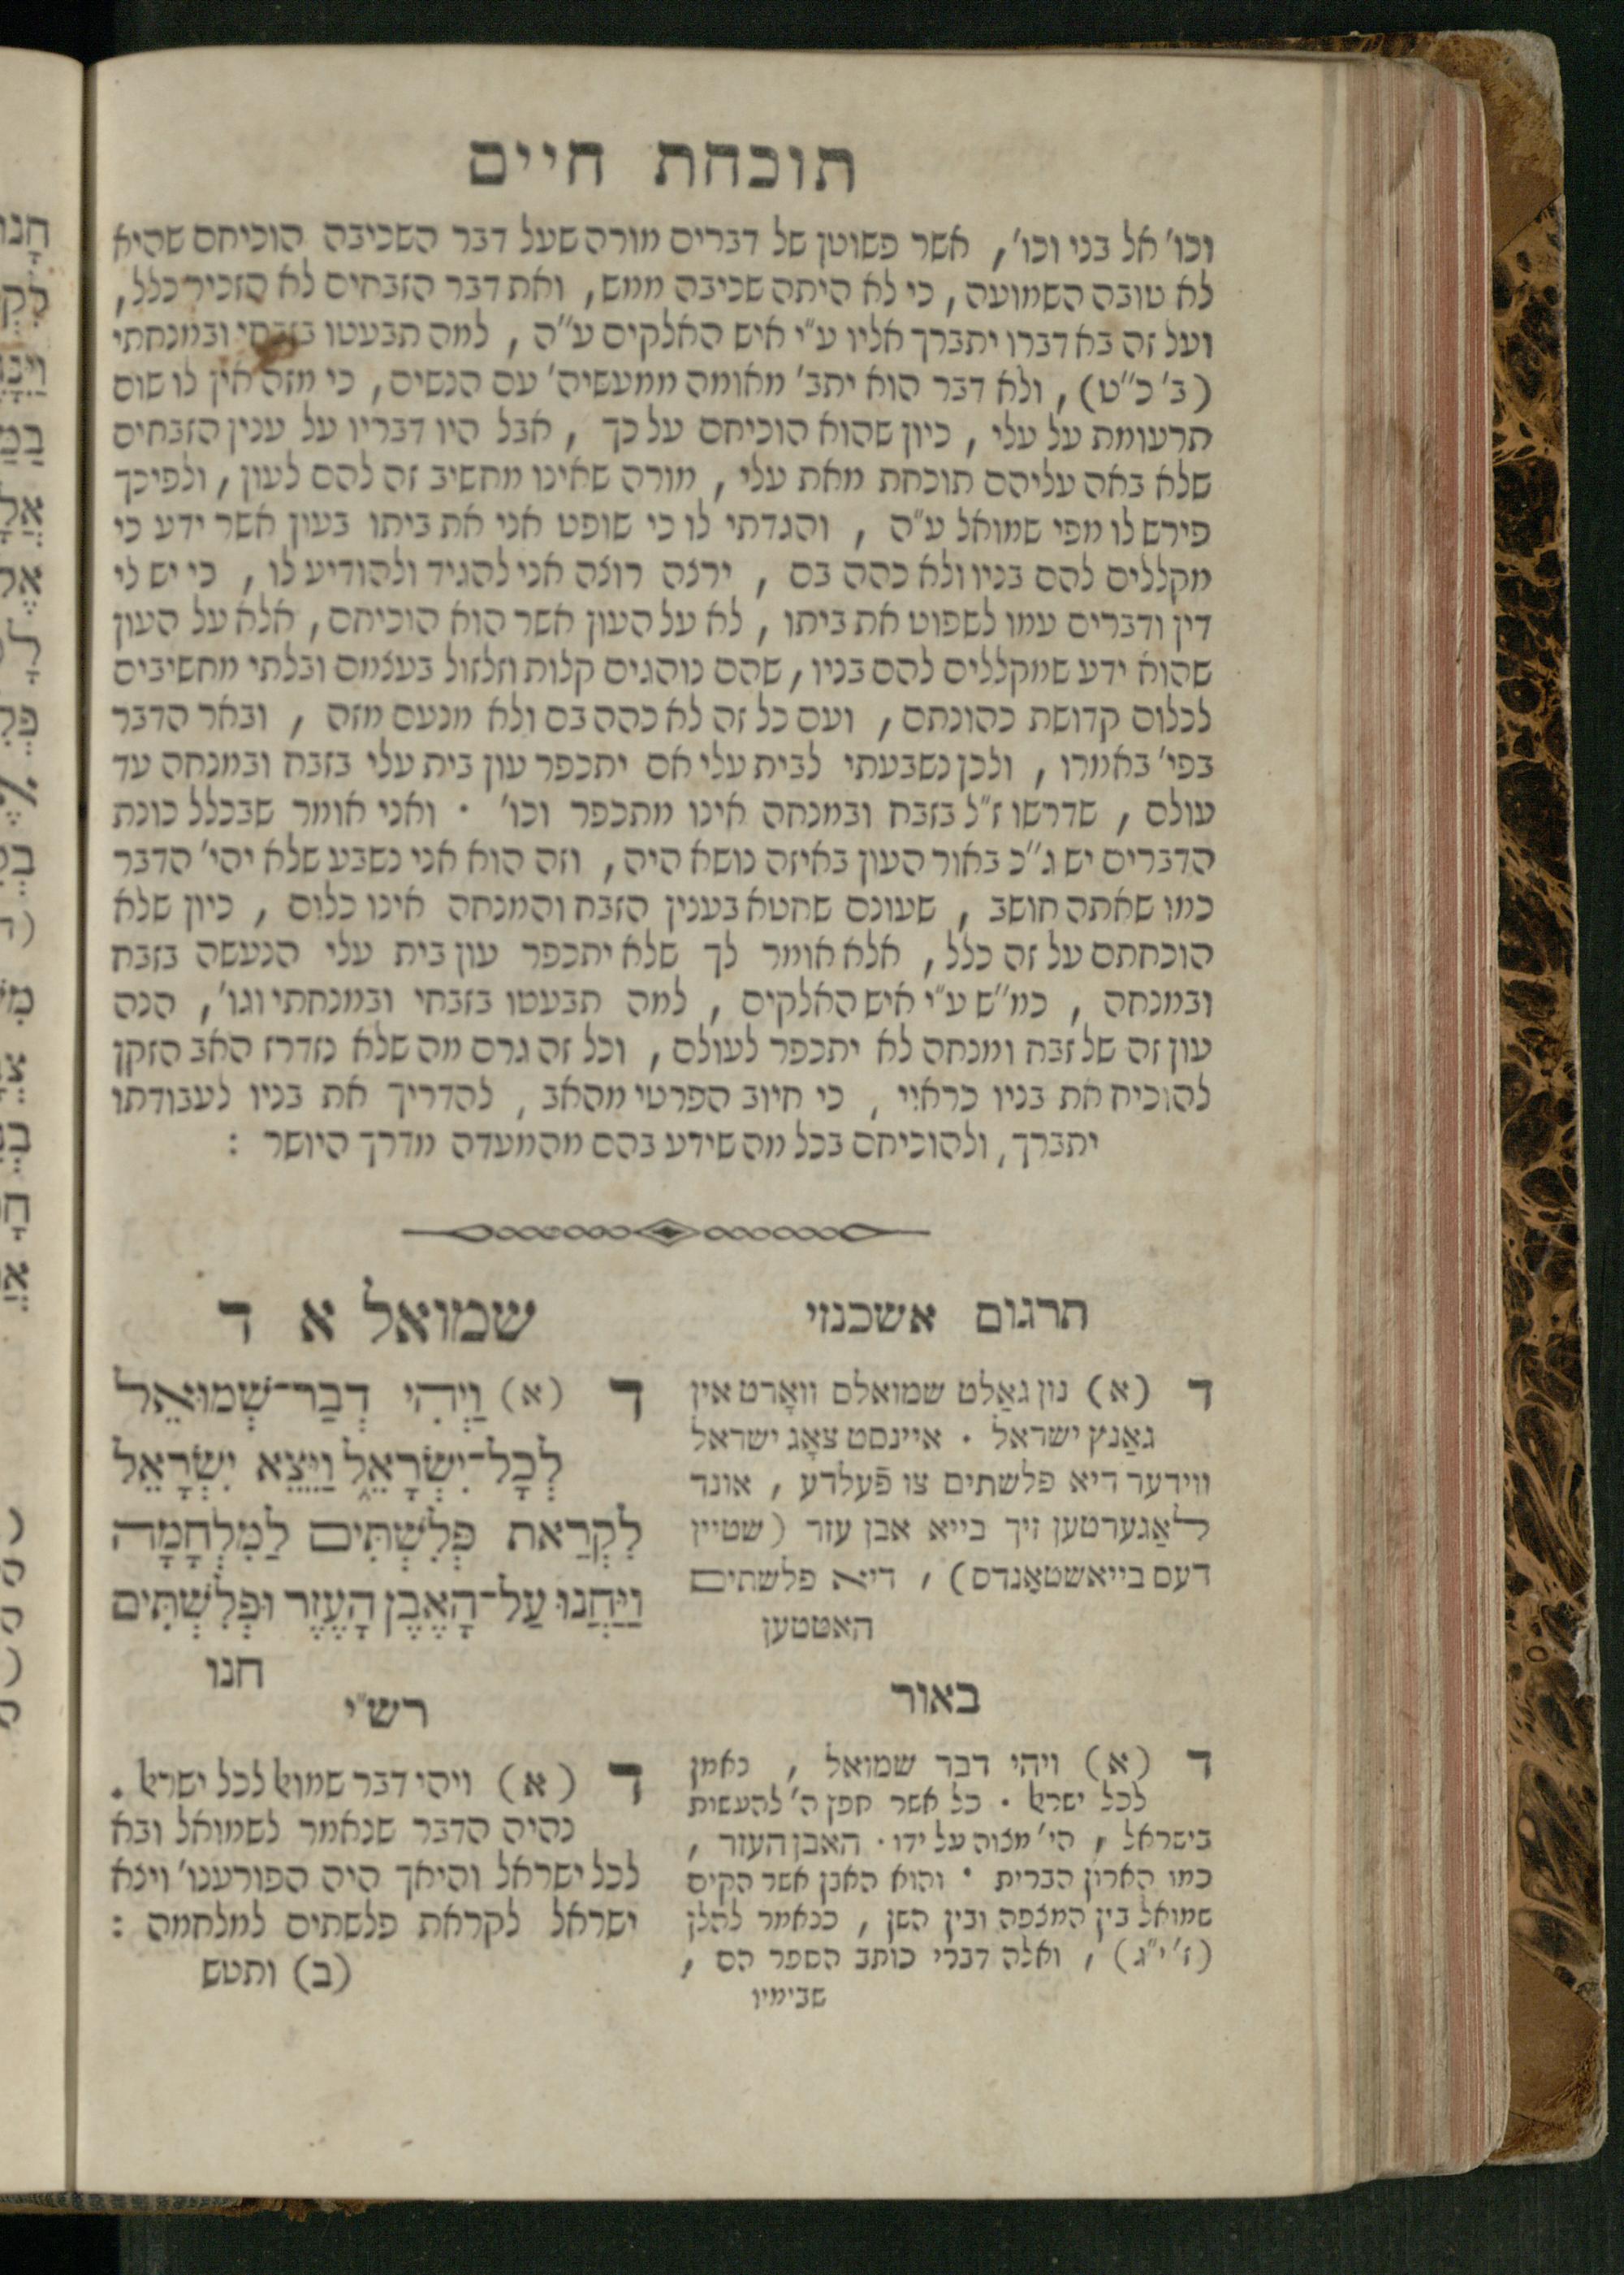 תוכחת חיים
וכו' אל בני וכו', אשר פשוטן של דברים מורה שעל דבר השכיבה הוכיחם שהיא
לא טובה השמועה, כי לא היתה שכיבה ממש, ואת דבר הזבחים לא הזכיר כלל,
ועל זה בא דברו יתברך אליו ע"י איש האלקים ע"ה, למה תבעטו בזבחי ובמנחתי
(ב' כ"ט), ולא דבר הוא יתב' מאומה ממעשיה' עם הנשים, כי מזה אין לו שום
תרעומת על עלי, כיון שהוא הוכיחם על כך, אבל היו דבריו על ענין הזבחים
שלא באה עליהם תוכחת מאת עלי, מורה שאינו מחשיב זה להם לעון, ולפיכך
פירש לו מפי שמואל ע"ה, והגדתי לו כי שופט אני את ביתו בעון אשר ידע כי
מקללים להם בניו ולא כהה בם, ירצה רוצה אני להגיד ולהודיע לו, כי יש לי
דין ודברים עמו לשפוט את ביתו, לא על העון אשר הוא הוכיחם, אלא על העון
שהוא ידע שמקללים להם בניו, שהם נוהגים קלות וזלזול בעצמם ובלתי מחשיבים
לכלום קדושת כהונתם, ועם כל זה לא כהה בם ולא מנעם מזה, ובאר הדבר
בפי' באמרו, ולכן נשבעתי לבית עלי אם יתכפר עון בית עלי בזבח ובמנחה עד
עולם, שדרשו ז"ל בזבח ובמנחה אינו מתכפר וכו' · ואני אומר שבכלל כונת
הדברים יש ג"כ באור העון באיזה נושא היה, וזה הוא אני נשבע שלא יהי' הדבר
כמו שאתה חושב, שעונם שחטא בענין הזבח והמנחה אינו כלום, כיון שלא
הוכחתם על זה כלל, אלא אומר לך שלא יתכפר עון בית עלי הנעשה בזבח
ובמנחה, כמ"ש ע"י איש האלקים, למה תבעטו בזבחי ובמנחתי וגו', הנה
עון זה של זבח ומנחה לא יתכפר לעולם, וכל זה גרם מה שלא נזדרז האב הזקן
להוכיח את בניו כראוי, כי חיוב הפרטי מהאב, להדריך את בניו לעבודתו
יתברך, ולהוכיחם בכל מה שידע בהם מהמעדה מדרך היושר :
תרגום אשכנזי
ד (א) נון גאַלט שמואלס וואָרט אין
גאַנץ ישראל · איינסט צאָג ישראל
ווידער דיא פלשתים צו פֿעלדע, אונד
לאַגערטען זיך בייא אבן עזר (שטיין
דעס בייאשטאַנדס), דיא פלשתים
האטטען
שמואל א ד
ד (א) וַיְהִי דְבַר־שְׁמוּאֵל
לְכָל־יִשְׂרָאֵל וַיֵּצֵא יִשְׂרָאֵל
לִקְרַאת פְּלִשְׁתִּים לַמִּלְחָמָה
וַיַּחֲנוּ עַל־הָאֶבֶן הָעֶזֶר וּפְלִשְׁתִּים
חנו
באור
ד (א) ויהי דבר שמואל, נאמן
לכל ישראל · כל אשר חפץ ה' להעשות
בישראל, הי' מצוה על ידו · האבן העזר,
כמו הארון הברית · והוא האבן אשר הקים
שמואל בין המצפה ובין השן, כנאמר להלן
(ז' י"ג), ואלה דברי כותב הספר הם,
שבימיו
רש"י
ד (א) ויהי דבר שמואל לכל ישראל .
נהיה הדבר שנאמר לשמואל ובא
לכל ישראל והיאך היה הפורענו' ויצא
ישראל לקראת פלשתים למלחמה :
(ב) ותטש